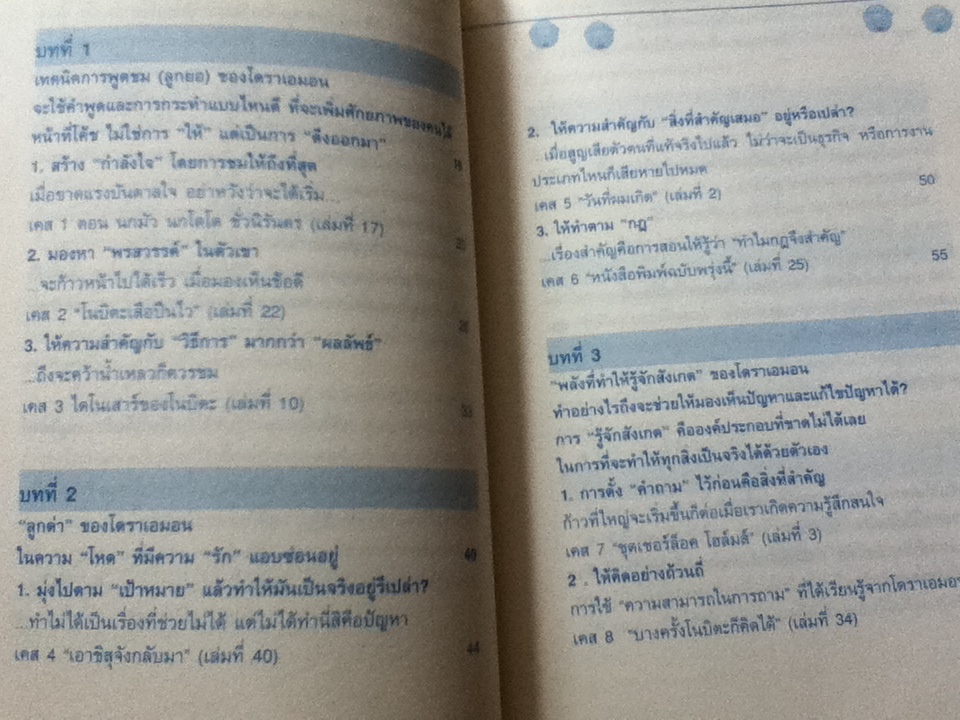 บทที่ 1
เทคนิคการพูดชม (ลูกยอ) ของโดราเอมอน
จะใช้คำพูดและการกระทำแบบไหนดี ที่จะเพิ่มศักยภาพของคนได้
หน้าที่โค้ช ไม่ใช่การ "ให้" แต่เป็นการ "ดึงออกมา"
1. สร้าง "กำลังใจ" โดยการชมให้ถึงที่สุด
เมื่อขาดแรงบันดาลใจ อย่าหวังว่าจะได้เริ่ม...
เคส 1 ตอน นกมัว นกโตโต ชั่วนิรันดร (เล่มที่ 17)
2. มองหา "พรสวรรค์" ในตัวเขา
...จะก้าวหน้าไปได้เร็ว เมื่อมองเห็นข้อดี
เคส 2 "โนบิตะเสือปืนไว" (เล่มที่ 22)
3. ให้ความสำคัญกับ "วิธีการ" มากกว่า "ผลลัพธ์"
...ถึงจะคว้าน้ำเหลวก็ควรชม
เคส 3 ไดโนเสาร์ของโนบิตะ (เล่มที่ 10) 33
บทที่ 2
"ลูกด่า" ของโดราเอมอน
ในความ "โหด" ที่มีความ "รัก" แอบซ่อนอยู่ 40
1. มุ่งไปตาม "เป้าหมาย" แล้วทำให้มันเป็นจริงอยู่รึเปล่า?
...ทำไม่ได้เป็นเรื่องที่ช่วยไม่ได้ แต่ไม่ได้ทำนี่สิคือปัญหา
เคส 4 "เอาชิสุจังกลับมา" (เล่มที่ 40) 44
2. ให้ความสำคัญกับ "สิ่งที่สำคัญเสมอ" อยู่หรือเปล่า?
...เมื่อสูญเสียตัวตนที่แท้จริงไปแล้ว ไม่ว่าจะเป็นธุรกิจ หรือการงาน
ประเภทไหนก็เสียหายไปหมด
เคส 5 "วันที่ผมเกิด" (เล่มที่ 2) 50
3. ให้ทำตาม "กฎ"
...เรื่องสำคัญคือการสอนให้รู้ว่า "ทำไมกฎจึงสำคัญ"
เคส 6 "หนังสือพิมพ์ฉบับพรุ่งนี้" (เล่มที่ 25) 55
บทที่ 3
"พลังที่ทำให้รู้จักสังเกต" ของโดราเอมอน
ทำอย่างไรถึงจะช่วยให้มองเห็นปัญหาและแก้ไขปัญหาได้?
การ "รู้จักสังเกต" คือองค์ประกอบที่ขาดไม่ได้เลย
ในการที่จะทำให้ทุกสิ่งเป็นจริงได้ด้วยตัวเอง
1. การตั้ง "คำถาม" ไว้ก่อนคือสิ่งที่สำคัญ
ก้าวที่ใหญ่จะเริ่มขึ้นก็ต่อเมื่อเราเกิดความรู้สึกสนใจ
เคส 7 "ชุดเชอร์ล็อค โฮล์มส์" (เล่มที่ 3)
2 . ให้คิดอย่างถ้วนถี่
การใช้ "ความสามารถในการถาม" ที่ได้เรียนรู้จากโดราเอมอน
เคส 8 "บางครั้งโนบิตะก็คิดได้" (เล่มที่ 34)